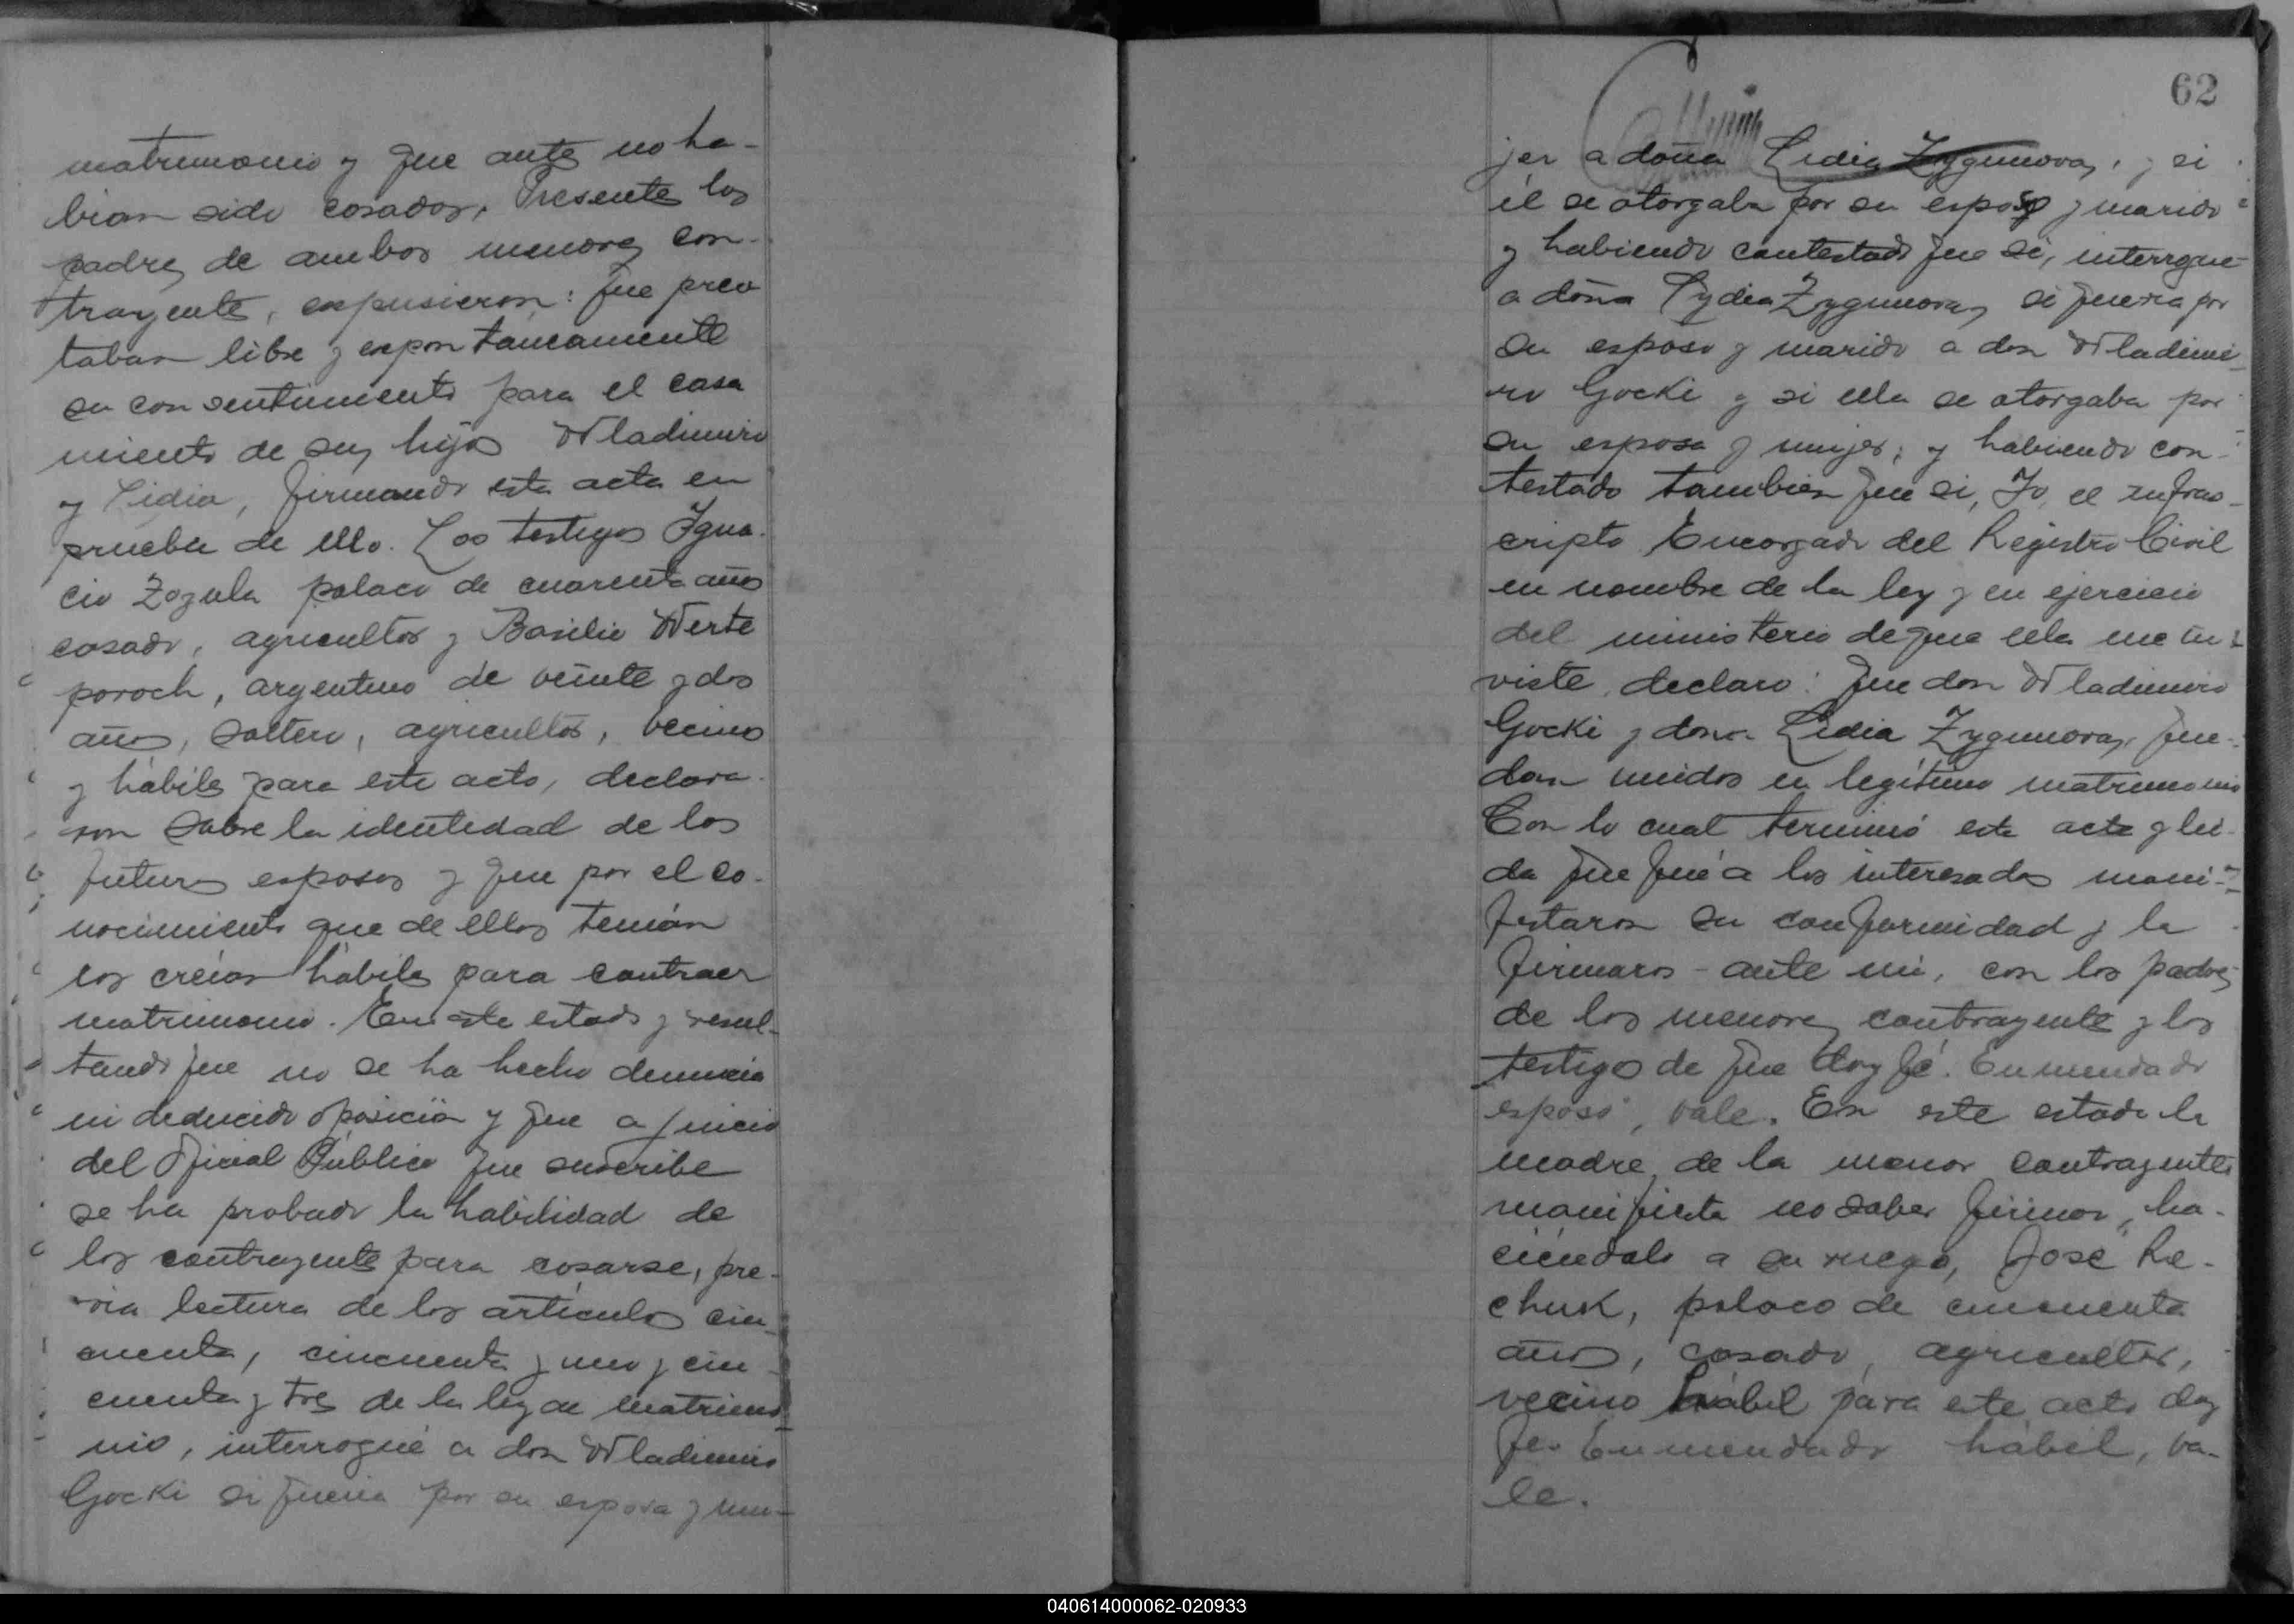 matrimonio y que antes no ha-
bian sido casados. Presentes los
padres de ambos menores con-
trayentes, expusieron: que pres
taban libre y expontaneamente
su consentimiento para el casa
miento de sus hijos Wladimiro
y Lidia, firmando esta acta en
prueba de ello. Los testigos Igna-
cio Zozula polaco de cuarenta años
casado, agricultor y Basilio Werte
poroch, argentino de veinte y dos
años, soltero, agricultor, vecinos
y hábiles para este acto, declara-
ron sobre la identidad de los
futuros esposos y que por el co-
nocimiento que de ellos tenían
los creían hábiles para contraer
matrimonio. En este estado y resul-
tando que no se ha hecho denuncia
ni deducido oposición y que a juicio
del Oficial Público que suscribe
se ha probado la habilidad de
los contrayentes para casarse, pre-
via lectura de los artículos cin-
cuenta, cincuenta y uno y cin-
cuenta y tres de la ley de matrimo-
nio, interrogué a don Wladimiro
Gocki si quería por su esposa y mu-
62
jer a doña Lidia Zygmoras, y si
él se otorgaba por su esposo y marido
y habiendo contestado que sí, interrogue
a doña Lydia Zygmoras si queria por
su esposo y marido a don Wladimi-
ro Gocki y si ella se otorgaba por
su esposa y mujer; y habiendo con-
testado tambien que si, Yo, el infras-
cripto Encargado del Registro Civil
en nombre de la ley y en ejercicio
del ministerio de que ella me in
viste, declaro: que don Wladimiro
Gocki y dona Lidia Zygmoras, que-
dan unidos en legítimo matrimonio
Con lo cual terminó este acta y lei-
da que fué a los interesados mani-
festaron su conformidad y la
firmaron ante mi, con los padres
de los menores contrayentes y los
testigos de que doy fé. Enmendado
esposo, vale. En este estado la
madre de la menor contrayente
manifiesta no saber firmar, ha-
ciéndolo a su ruego, José Re-
chuk, polaco de cincuenta
años, casado, agricultor,
vecino hábil para este acto doy
fe. Enmendado hábil, va-
le.
040614000062-020933